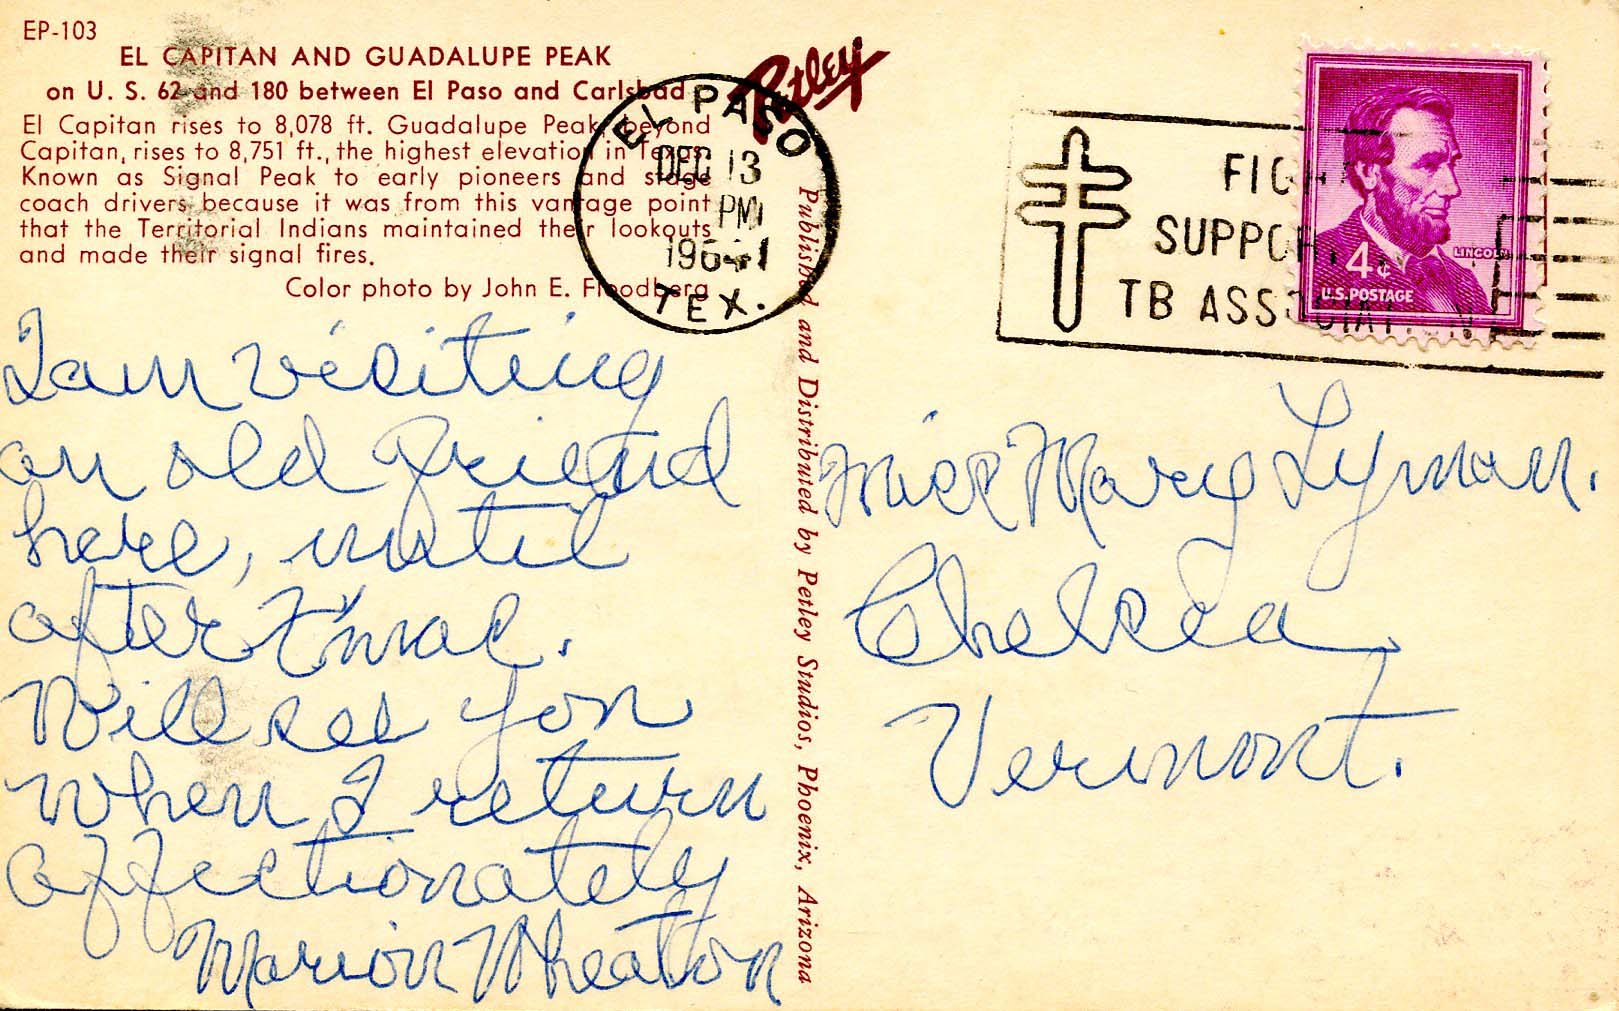 EP-103
EL CAPITAN AND GUADALUPE PEAK
on U. S. 62 and 180 between El Paso and Carlsbad
El Capitan rises to 8,078 ft. Guadalupe Peak, beyond
Capitan, rises to 8,751 ft., the highest elevation in Texas.
Known as Signal Peak to early pioneers and stage
coach drivers because it was from this vantage point
that the Territorial Indians maintained their lookouts
and made their signal fires.
Color photo by John E. Floodberg
I am visiting
an old friend
here, until
after X'mas.
Will see you
when I return
affectionately
Marion Wheaton
Petley
EL PASO
DEC 13
PM
TEX.
Published and Distributed by Petley Studios, Phoenix, Arizona
FIGHT
SUPPORT
TB ASSOCIATION
LINCOLN
4¢
U.S. POSTAGE
Miss Mary Lyman.
Chelsea,
Vermont.